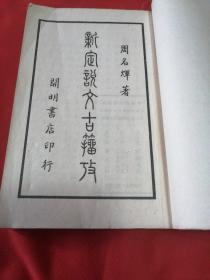 周名煇著
新定說文古籀攷
開明書店印行